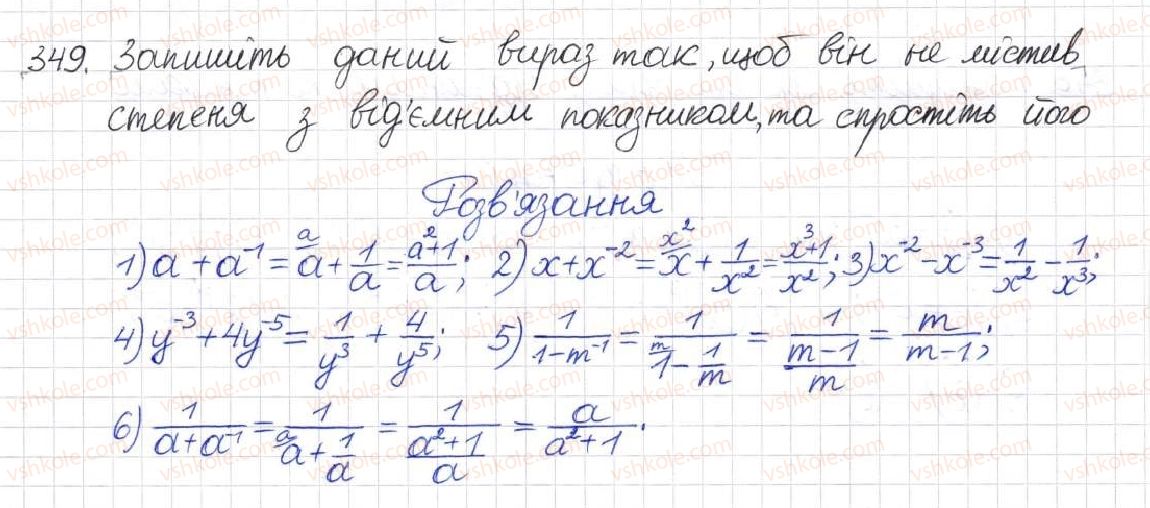 349. Запишіть даний вираз так, щоб він не містив
степеня з від'ємним показником, та спростіть його
Розв'язання
1) a + a⁻¹ = ᵃ/a + 1/a = (a²+1)/a; 2) x + x⁻² = ˣ²/x + 1/x² = (x³+1)/x²; 3) x⁻² - x⁻³ = 1/x² - 1/x³;
4) y⁻³ + 4y⁻⁵ = 1/y³ + 4/y⁵; 5) 1/(1-m⁻¹) = 1/(ᵐ/1 - 1/m) = 1/((m-1)/m) = m/(m-1);
6) 1/(a+a⁻¹) = 1/(ᵃ/a + 1/a) = 1/((a²+1)/a) = a/(a²+1).
vshkole.com